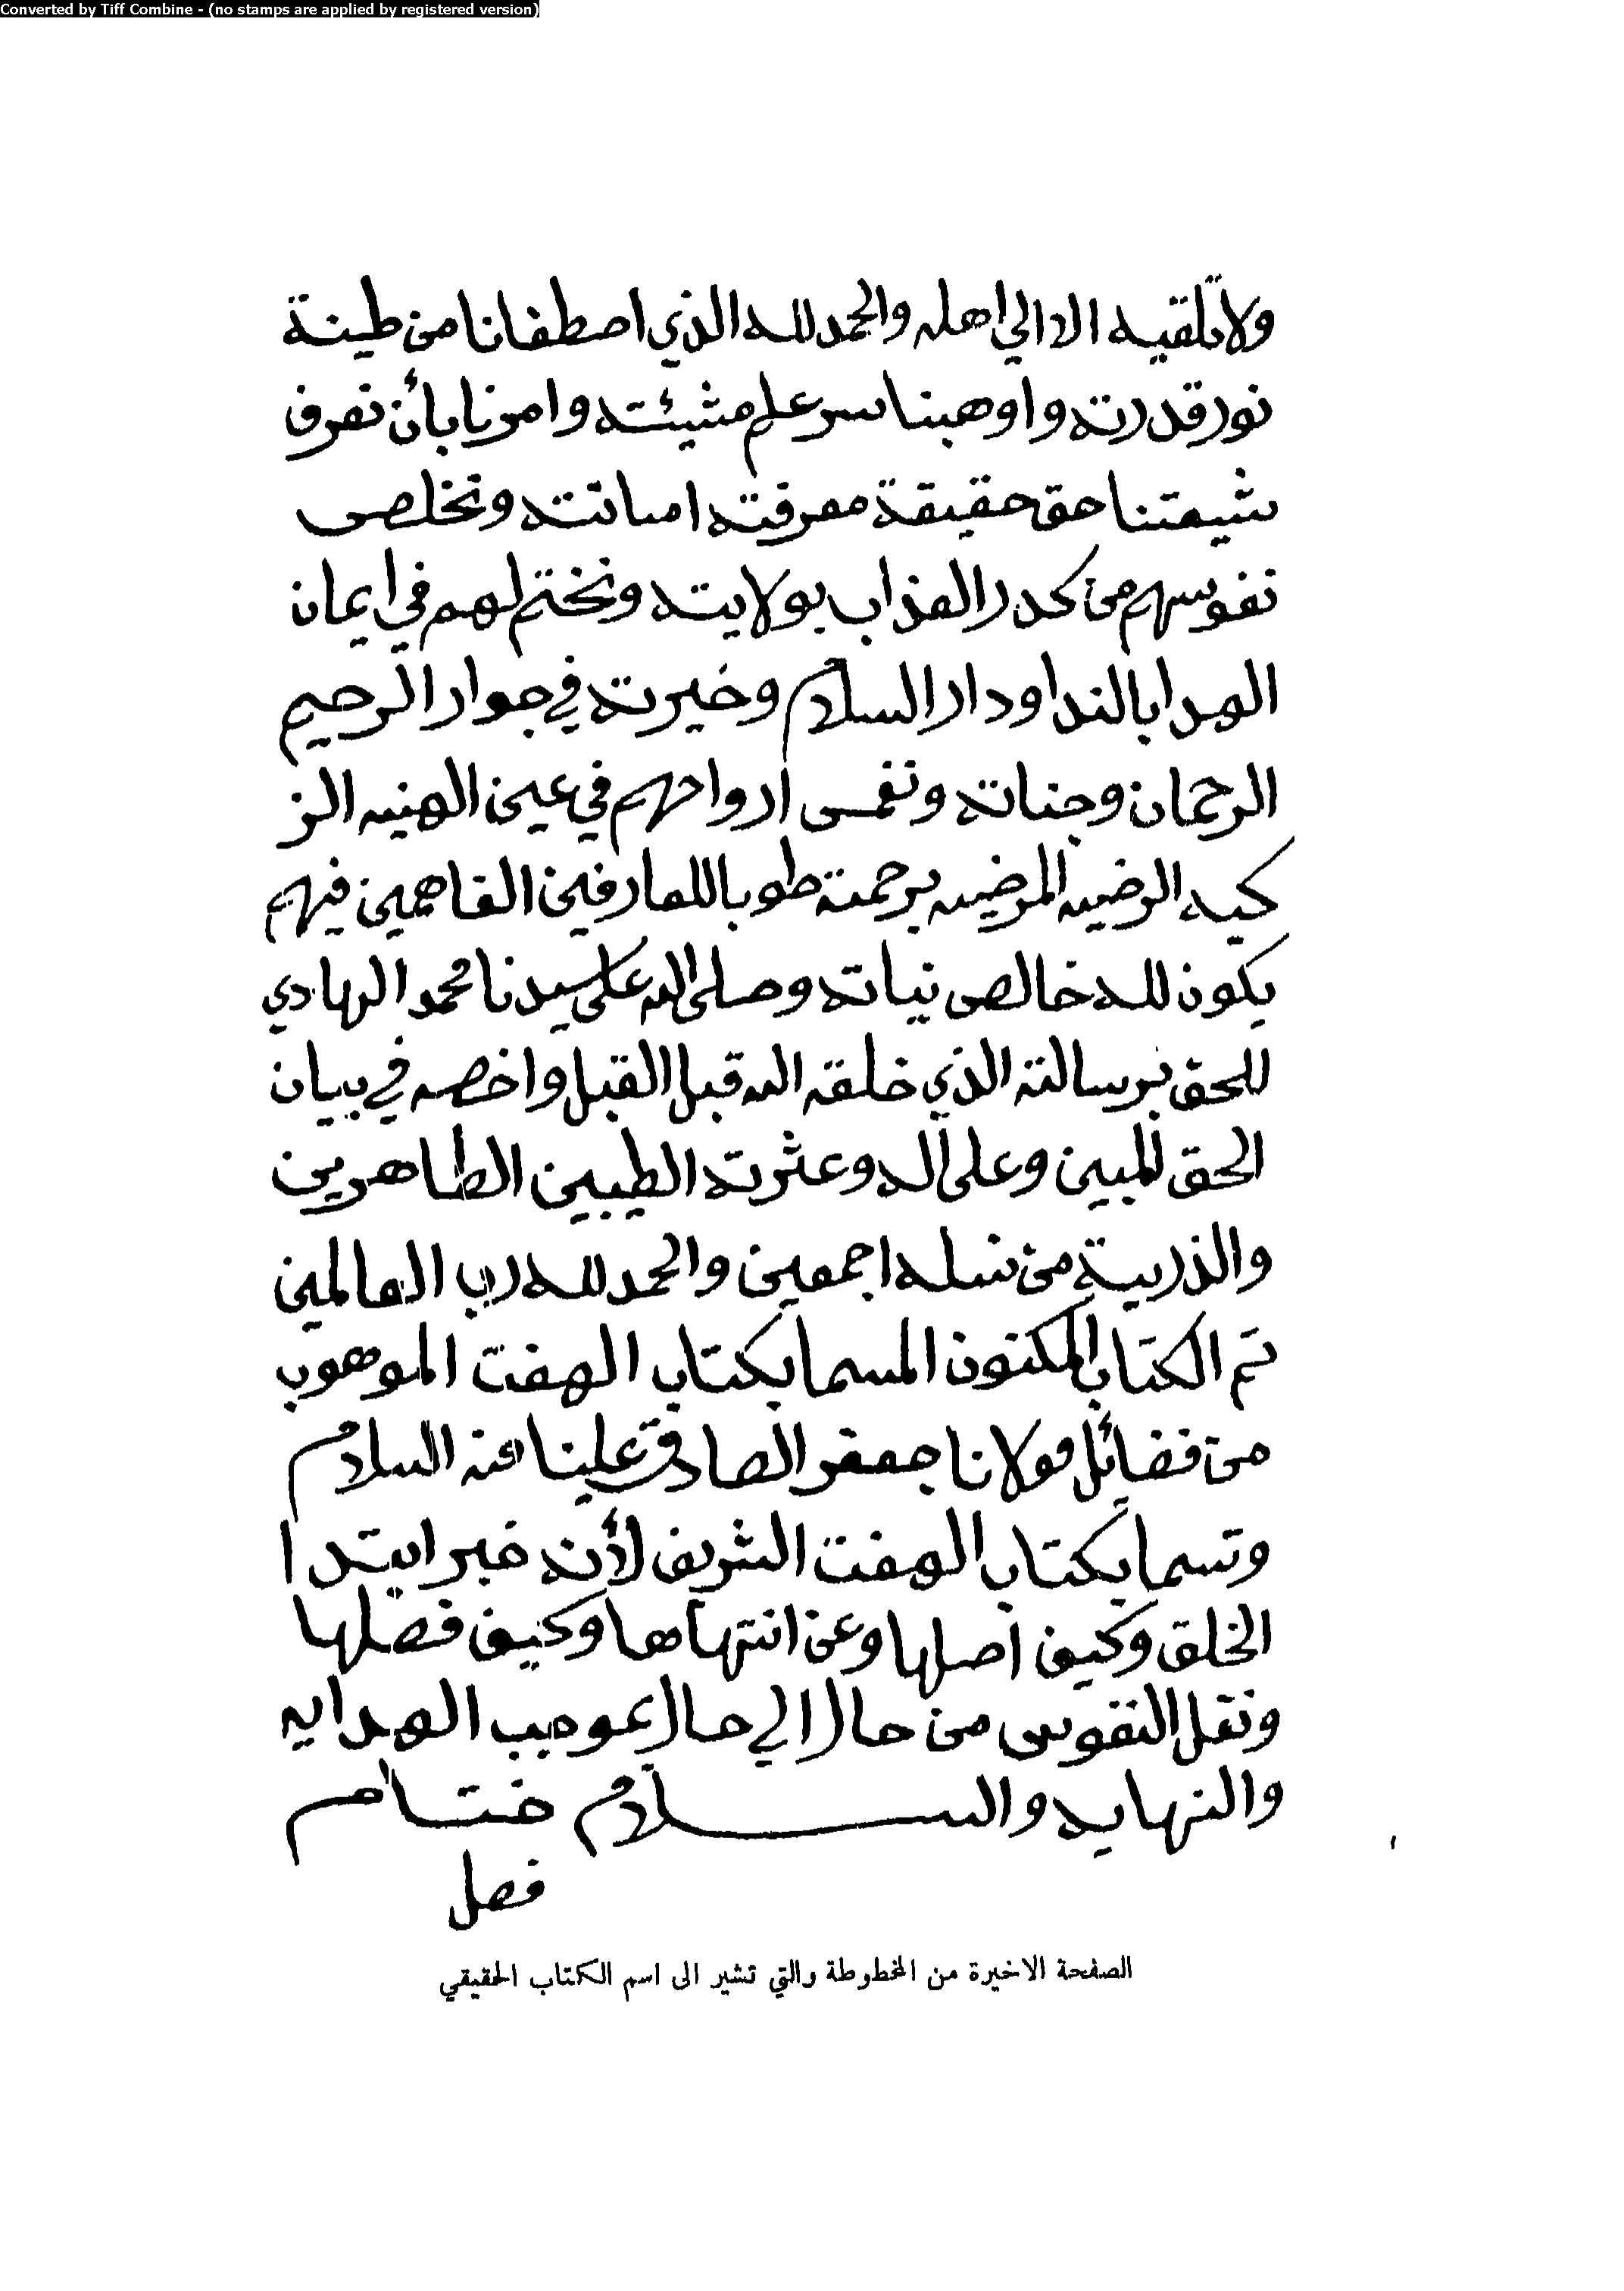 Converted by Tiff Combine - (no stamps are applied by registered version)
ولا تلقيه الا الي اهله والحمد لله الذي اصطفانا من طينة
نور قدرته واوهبنا سر علم مشيئته وامرنا بأن نعرف
شيعتنا حق حقيقة معرفته امانته ونخلص
نفوسهم من كدر العذاب بولايته ونختم لهم في ايمان
الهدا بالندا ودار السلام وخيرته في جوار الرحيم
الرحمان وجناته ونغمس ارواحهم في عين الهنيه الز
كيه الرضيه المرضيه برحمته طوبا للعارفين الفاهمين فيهم
يكون لله خالص نياته وصلى الله على سيدنا محمد الهادي
للحق برسالته الذي خلقه الله قبل القبل واخصه في بيان
الحق المبين وعلى آله وعثرته الطيبين الطاهرين
والذرية من نسله اجمعين والحمد لله رب العالمين
تم الكتاب المكنون المسما بكتاب الهفت الموهوب
من فضائل مولانا جعفر الصادق علينا منه السلام
وتسما بكتاب الهفت الشريف لأنه خبر ابتدا
الخلق وكيف اصلها وعن انتهاها وكيف فصلها
ونقل النفوس من حال الي حال بموجب الهدايه
والنهايه والسلام ختام
فصل
الصفحة الاخيرة من المخطوطة والتي تشير الى اسم الكتاب الحقيقي